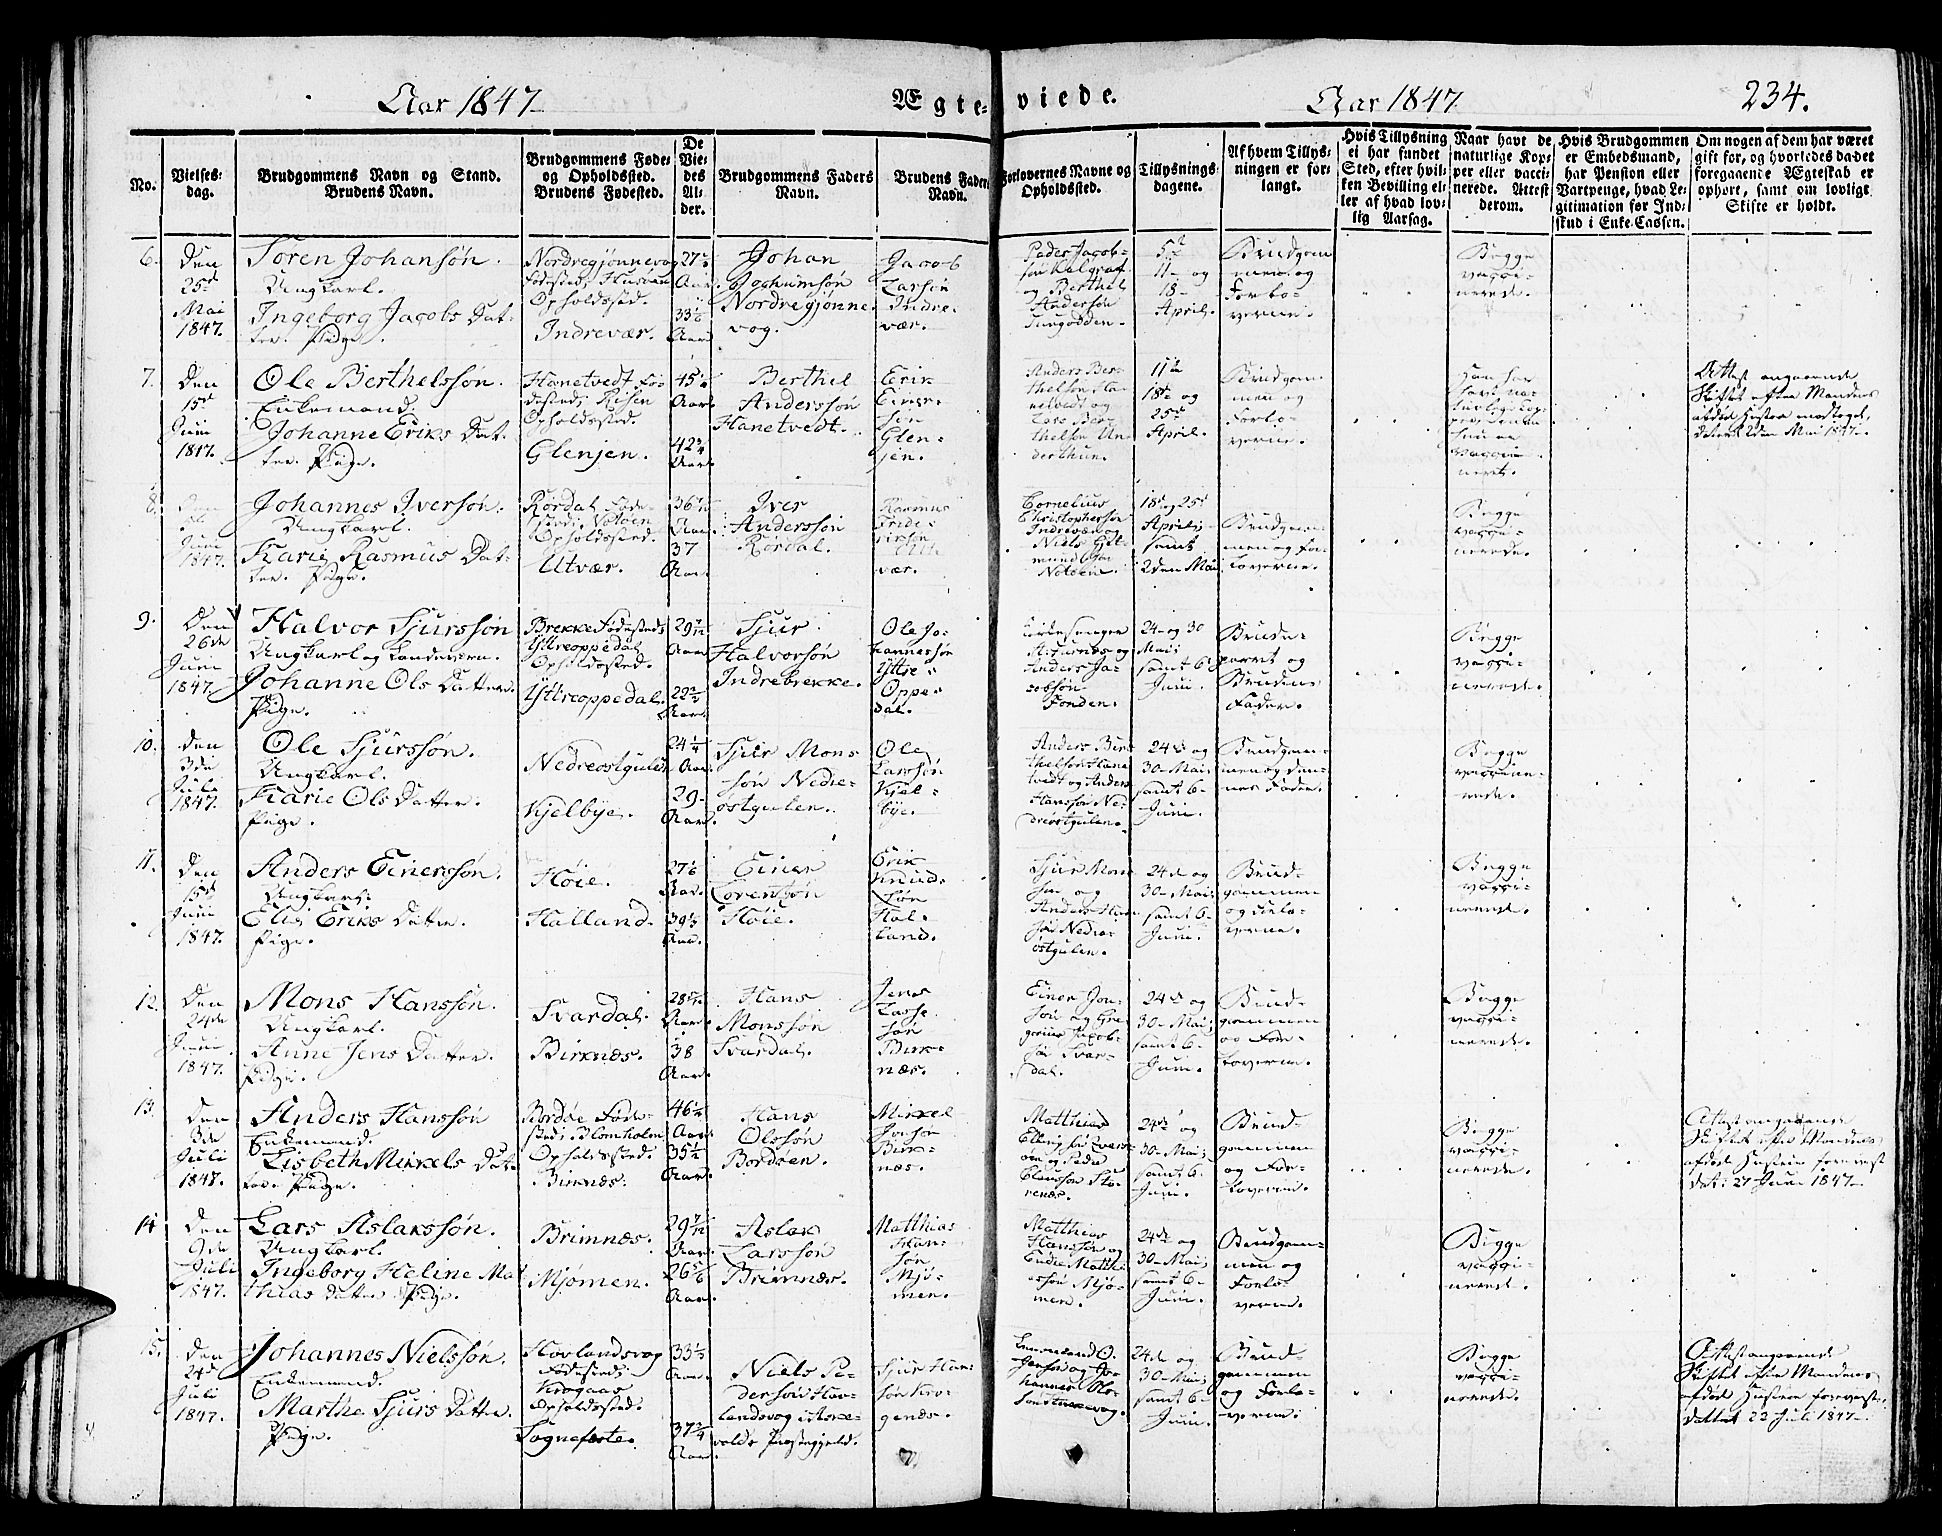 Aar 1847
Ægte-
viede.
Aar 1847
234.
No.
Vielses-
dag.
Brudgommens Navn og Stand.
Brudens Navn.
Brudgommens Føde-
og Opholdssted.
Brudens Fødested.
De
Vie-
des
Al-
der.
Brudgommens Faders
Navn.
Brudens Faders
Navn.
Forlovernes Navne og
Opholdssted.
Tillysnings-
dagene.
Af hvem Tillys-
ningen er for-
langt.
Hvis Tillysning
ei har fundet
Sted, efter hvil-
ken Bevilling el-
ler af hvad lov-
lig Aarsag.
Naar havt de
naturlige Kop-
per eller vacci-
nerede. Attest
derom.
Hvis Brudgommen
er Embedsmand,
har Pension eller
Vartpenge, hvad Le-
gitimation for Ind-
skud i Enke-Cassen.
Om nogen af dem har været
gift før, og hvorledes da det
foregaaende Ægteskab er
ophørt, samt om lovligt
Skifte er holdt.
6.
Den
25d
Mai
1847.
Søren Johansøn.
Ungkarl.
Ingeborg Jacobs Dat-
ter. Pige.
Nordregjønnevog
Fødested,
Opholdssted.
Indrevær.
Aar.
Aar
Johan
Jochumsøn
Nordregjønne-
vog.
Jacob
Larsen
Indre-
vær.
Peder Jacob-
søn
og Berthel
Andersøn
5te
11- og
18-
April.
Brudgom
men og
Forlo-
verne.
Begge
vacci-
nerede.
7.
Den
15d
Juni
1847.
Ole Berthelssøn.
Enkemand.
Johanne Eriks Dat-
ter. Pige.
Hanetvedt Fø-
dested; Risøen
Opholdssted.
Glenjen.
Aar.
Aar.
Berthel
Anderssøn
Hanetvedt.
Erik
Einer-
søn
Glen-
jen.
Anders Ber-
thelsøn Ha-
netvedt og
thelsøn Un-
derthun.
11te
18de og
25de
April.
Brudgom
men og
Forlo-
verne.
Attest angaaende
Skiftet efter Mandens
afdøde Hustru modtaget,
dateret 2den Mai 1847.
8.
Juni
1847.
Johannes Iversøn.
Ungkarl.
Karie Rasmus Dat-
ter. Pige.
Rørdal Føde-
sted; Notøen
Opholdssted.
Utvær.
Aar.
37
Aar.
Iver
Anderssøn
Rørdal.
Rasmus
Fride-
riksøn
Ut-
vær.
Cornelius
Christophersøn
Indrevær og
Niels
Notøen.
18d og 25d
April,
samt
2den Mai
Brudgom-
men og For-
loverne.
Begge
vacci-
nerede.
9.
Den
26de
Juni
1847.
Halvor Sjurssøn
Ungkarl og Landeværn.
Johanne Ols Datter.
Pige.
Brekke Fødested;
Yttreoppedal
Opholdssted.
Yttreoppedal.
Aar.
Aar.
Sjur
Halvorsøn
Indrebrekke.
Ole Jo-
hannessøn
Yttre-
Oppe-
dal.
Kirkesanger
og
Anders Ja-
cobsøn
Fonden.
24- og 30
Mai;
samt 6-
Juni.
Brude-
parret og
Brudens
Fader.
Begge
vacci-
nerede.
10.
den
3die
Juli
1847.
Ole Sjurssøn.
Ungkarl.
Karie Ols Datter.
Pige.
Nedreøstgulen
Kjelbye.
24 1/4
Aar.
29-
Aar.
Sjur Mons
søn Nedre-
østgulen.
Ole
Larssøn
Kjel-
bye.
Anders Ber-
thelsøn Hane
tvedt og Anders
Hanssøn Ne-
dreøstgulen.
24de og
30- Mai;
samt 6-
Juni.
Brudgom-
men og den-
nes Fader.
Begge
vaccine-
rede.
11.
den
15d
Juni
1847.
Anders Einerssøn.
Ungkarl.
Elie Eriks Datter.
Pige.
Høie.
Halland.
Aar.
Aar.
Einer
Lorentsøn
Høie.
Erik
Knud-
søn
Hal-
land.
Sjur Mons
søn og
Anders Han
søn Nedre-
østgulen.
24d og
30- Mai;
samt 6-
Juni.
Brud-
gommen
og Forlo-
verne.
Begge
vacci-
nerede.
12.
Den
24de
Juni
1847.
Mons Hanssøn.
Ungkarl.
Anne Jens Datter.
Pige.
Svardal.
Birknæs.
Aar.
38
Aar.
Hans
Monssøn
Svardal.
Jens
Lasse-
søn
Birk-
næs.
Einer Jon-
søn og Gre-
gorius Jacob-
søn Svar-
dal.
24de og
30- Mai;
samt 6-
Juni.
Brud-
gommen
og For-
loverne.
Begge
vacci-
nerede.
13.
den
3de
Juli
1847.
Anders Hanssøn
Enkemand.
Lisbeth Mikkels Dat-
ter. Pige.
Bordøe Føde-
sted; Blomholm
Opholdssted.
Birknæs.
Aar.
Aar.
Hans
Olssøn
Bordøen.
Mikkel
Jonsøn
Birk-
næs.
Matthias
Ellingsøn
og Peder
24de og
30- Mai;
samt 6-
Juni.
Brud-
gommen
og For-
loverne.
Begge
vacci-
nerede.
Attest angaaende
Skiftet efter Mandens
afdøde Hustru forevist
dat: 27 Juni 1847.
14
den
9de
Juli
1847.
Lars Aslakssøn.
Ungkarl.
Ingeborg Heline Mat
thias Datter Pige.
Brimnæs.
Mjømen.
Aar.
Aar.
Aslak
Larssøn
Brimnæs.
Matthias
Han-
søn
Mjø-
men.
Matthias
Hanssøn og
Endre Matthi-
assøn Mjø-
men.
24de og
30- Mai;
samt 6-
Juni.
Brudgom-
men og
Forlo-
verne.
Begge
vacci-
nerede.
15.
den
24d
Juli
1847.
Johannes Nielssøn.
Enkemand.
Marthe Sjurs Datter.
Pige.
Hovlandsvog
Fødested;
Krogaas
Opholdssted.
Sognefæste.
Aar.
Aar.
Niels Pe-
dersøn Hov-
landsvog i Aske-
volds Præstegjeld.
Sjur Han-
søn Kro-
genæs.
24d og
30- Mai;
samt 6-
Juni.
Brud-
gommen
og Forlo-
verne.
Begge
vacci-
nerede.
Attest angaaende
Skiftet efter Mandens
afdøde Hustru forevist.
dateret 23 Juli 1847.